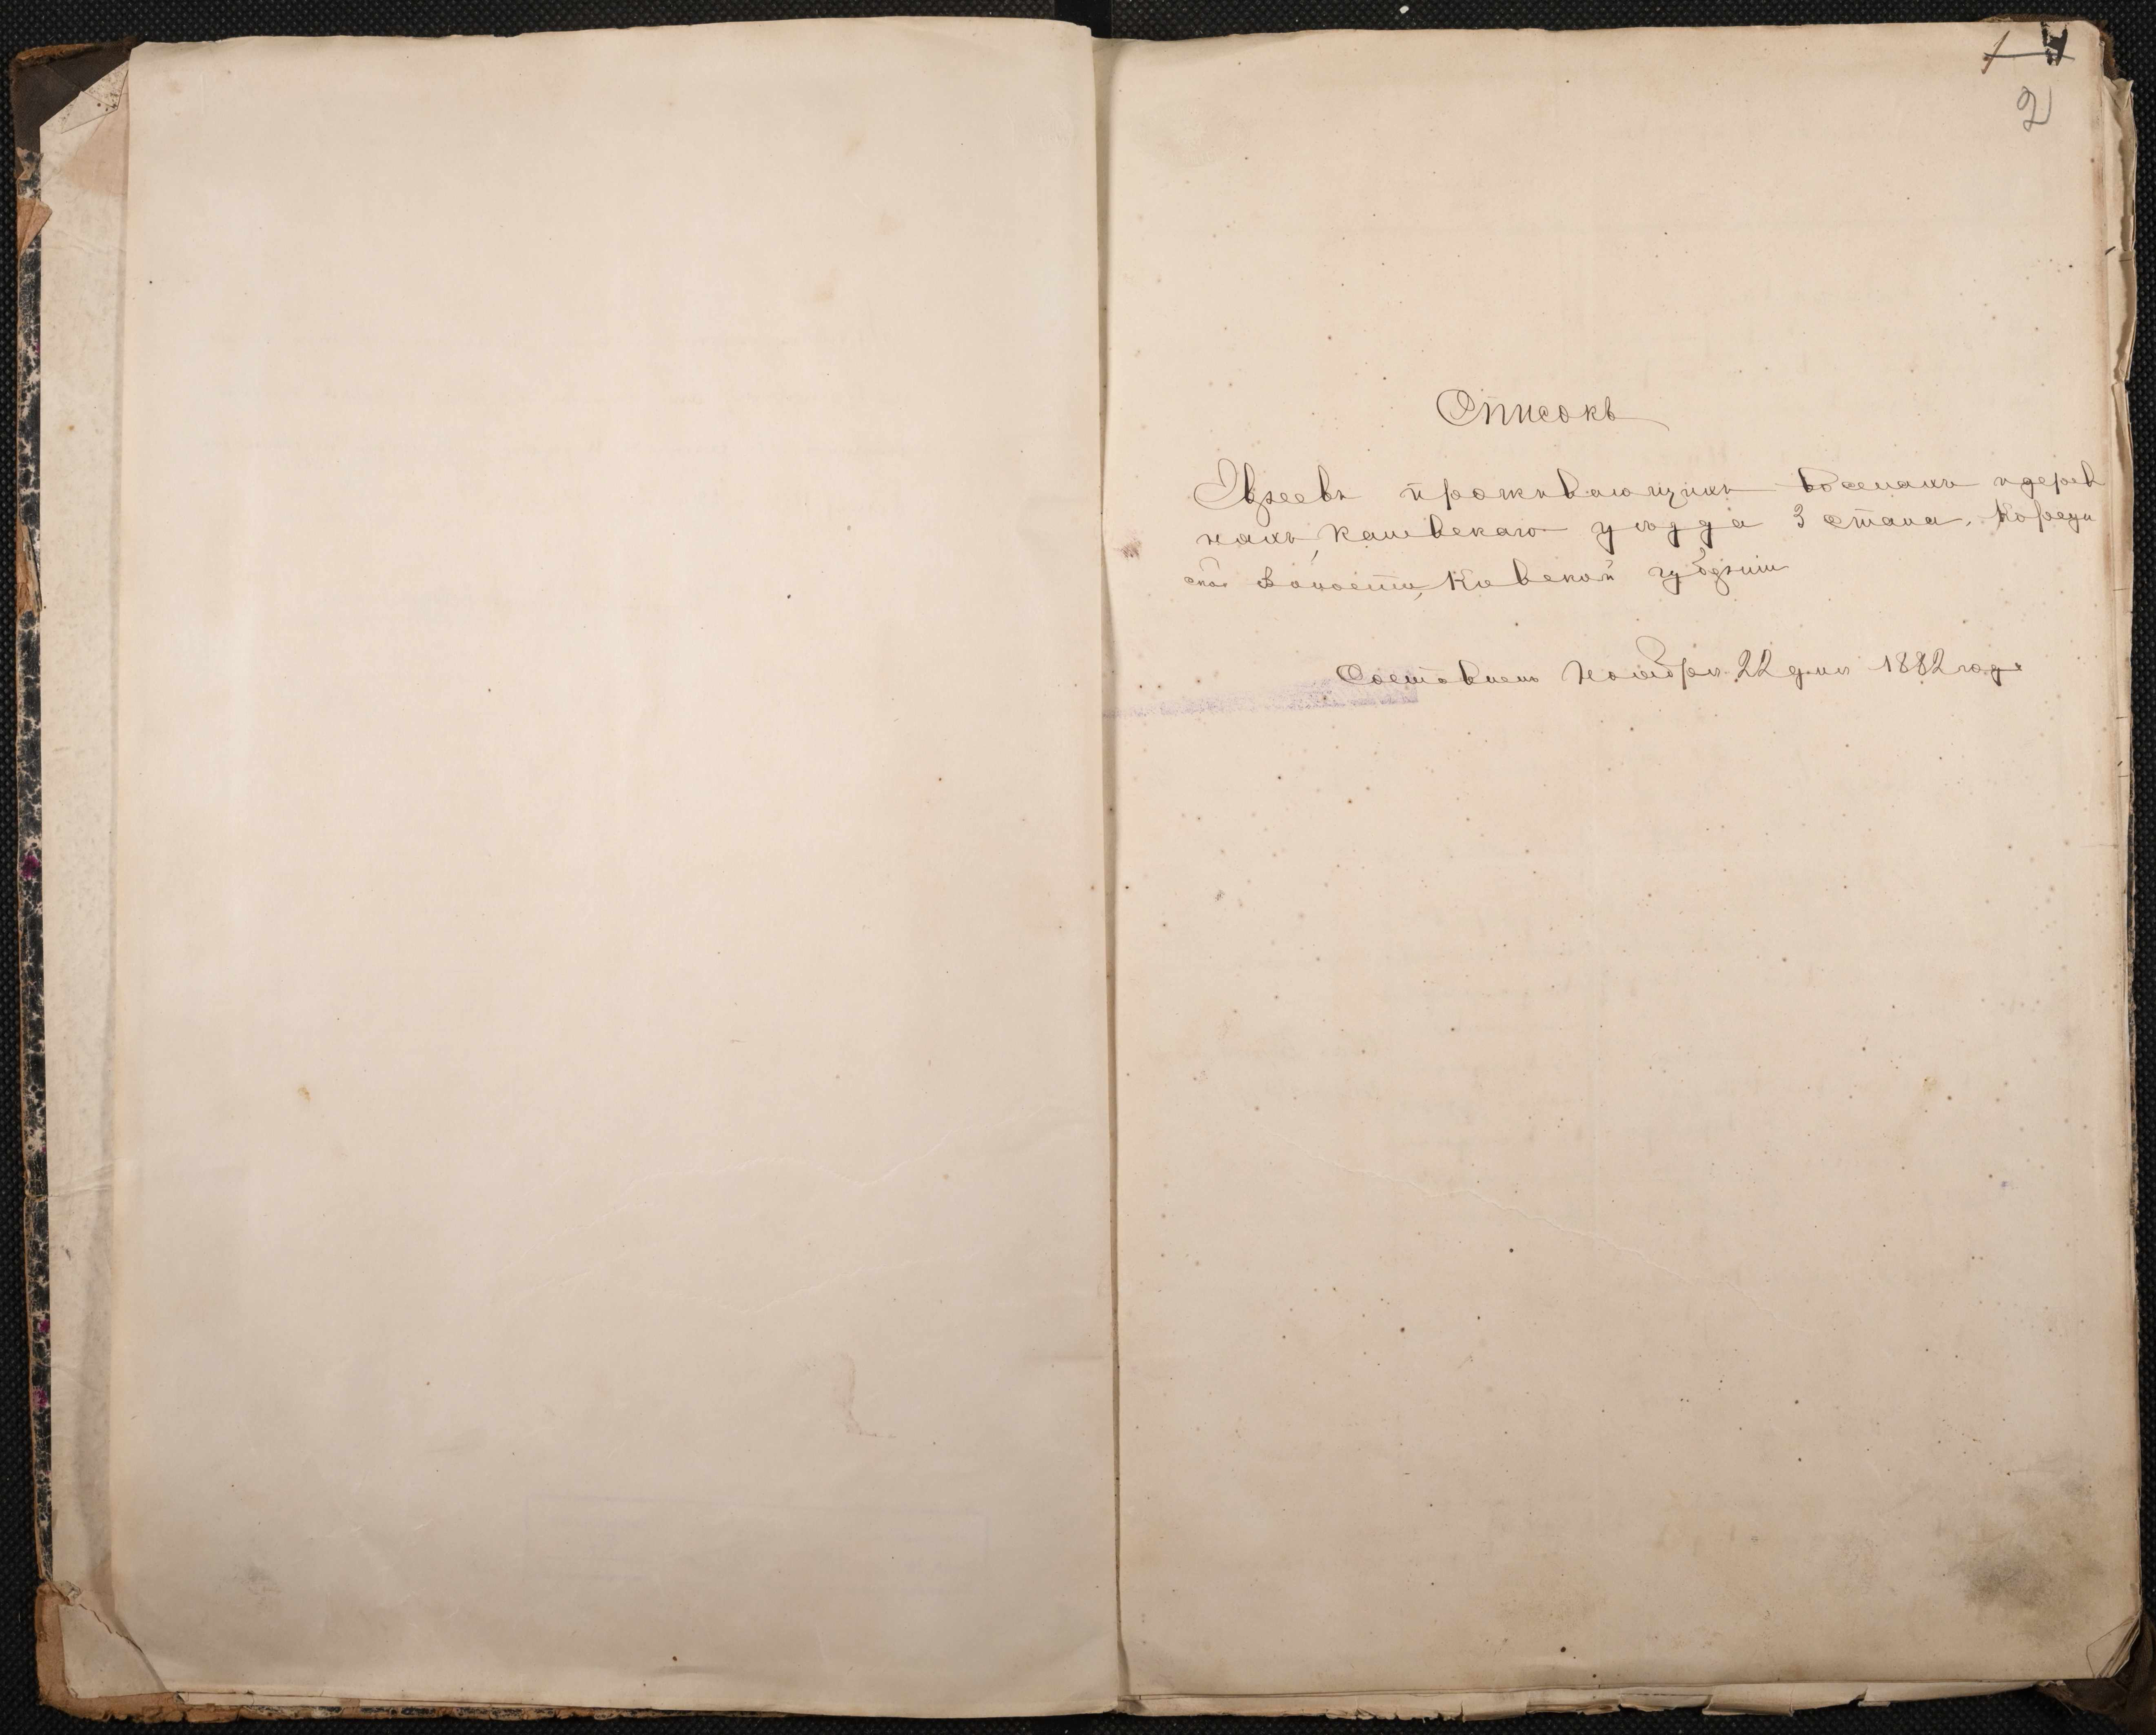 1 4
2
Списокъ
Евреевъ проживающихъ въ селахъ и дерев
няхъ, Каневскаго уѣзда 3 стана,
ской Волости, Кіевской губерніи
Составленъ Ноября 22 дня 1882 года